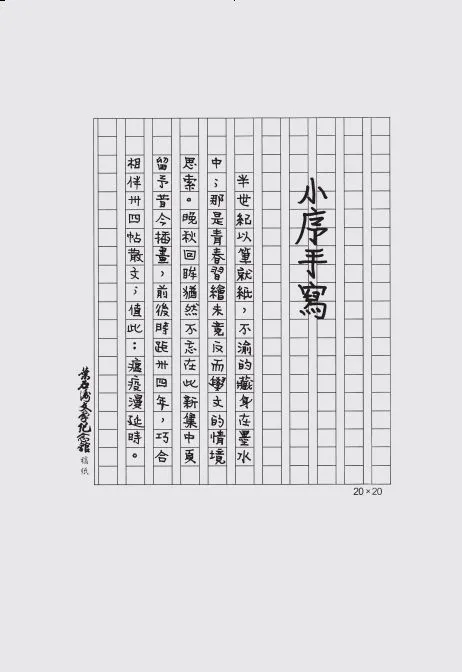 小序手寫
半世紀以筆就紙，不渝的藏身在墨水
中；那是青春習繪未竟反而學文的情境
思索。晚秋回眸猶然不忘在此新集中頁
留予昔今插畫，前後時距卅四年，巧合
相伴卅四帖散文；值此：瘟疫漫延時。
葉石濤文學紀念館 稿紙
20×20